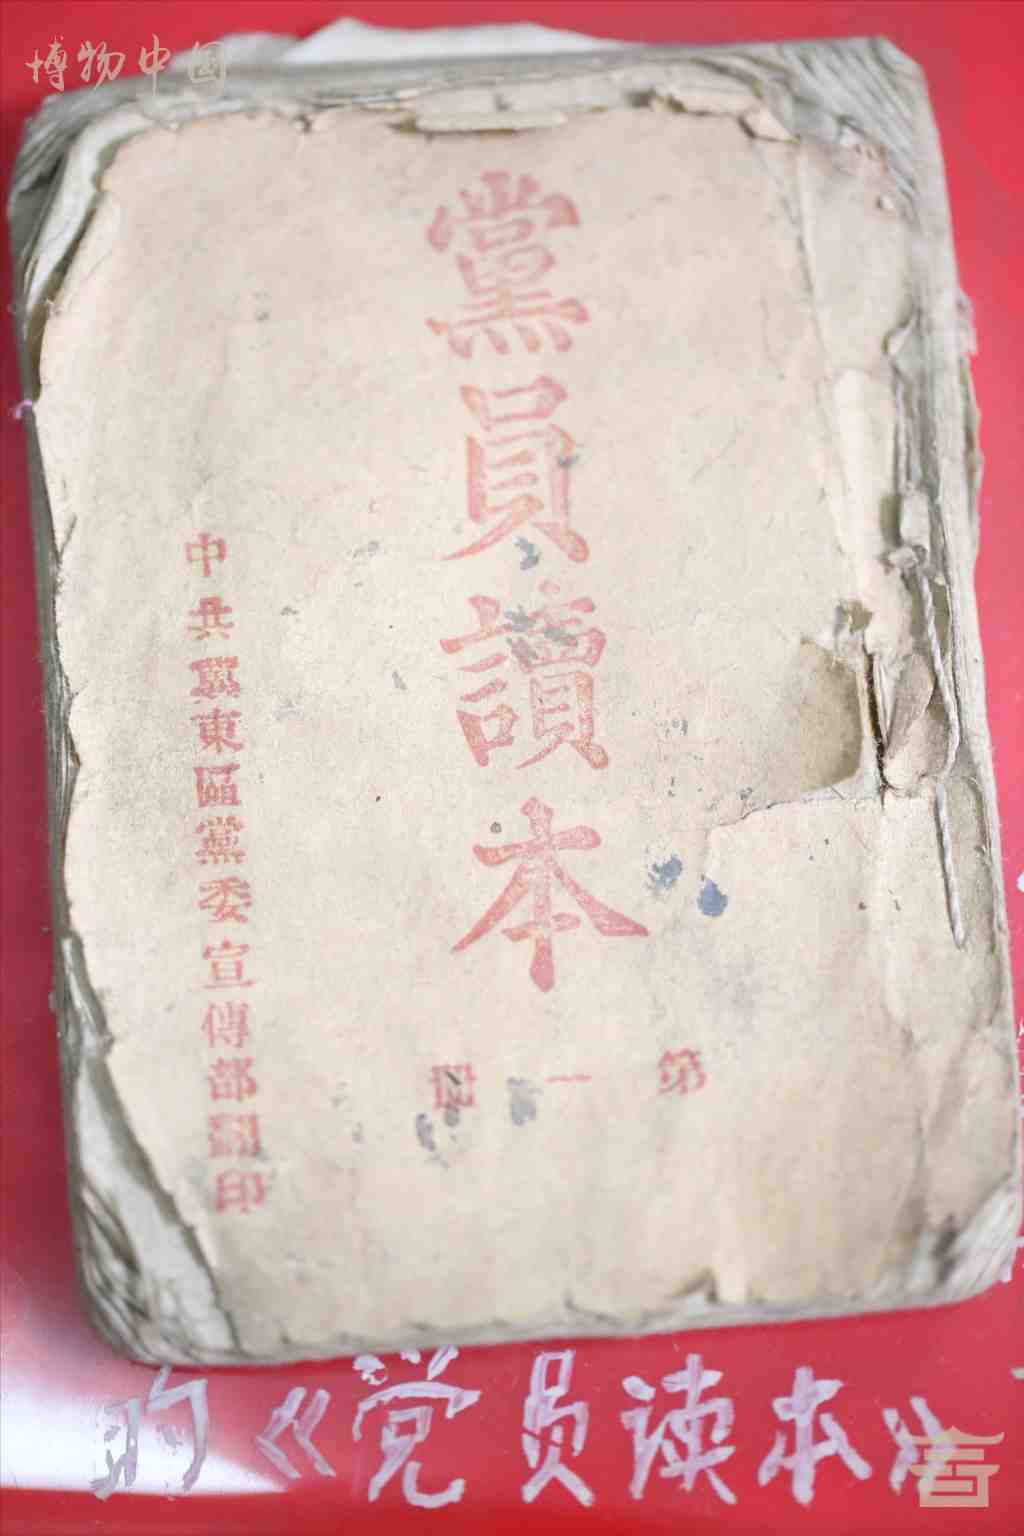 博物中国
黨員讀本
第一册
中共冀東區黨委宣傳部翻印
的《党员读本》